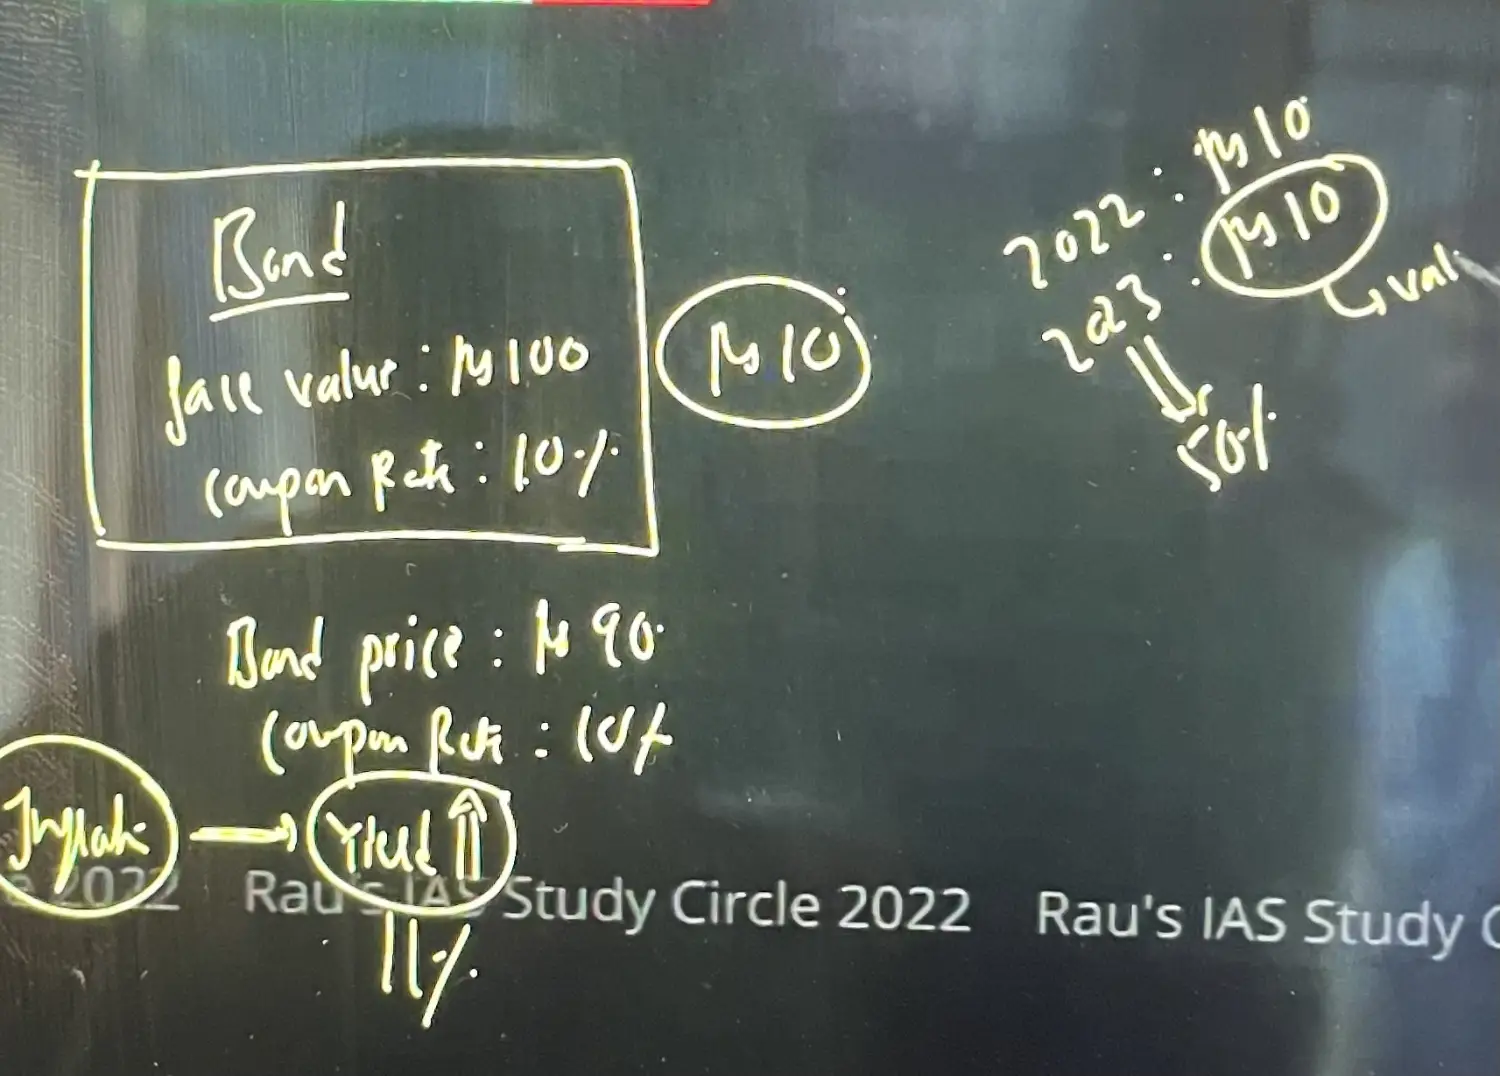 Bond
face value : Rs 100
coupon Rate : 10%
Rs 10
2022 : Rs 10
2023 : Rs 10
50%
Bond price : Rs 90
coupon Rate : 10%
Yield ↑
11%
2022 Rau's IAS Study Circle 2022 Rau's IAS Study